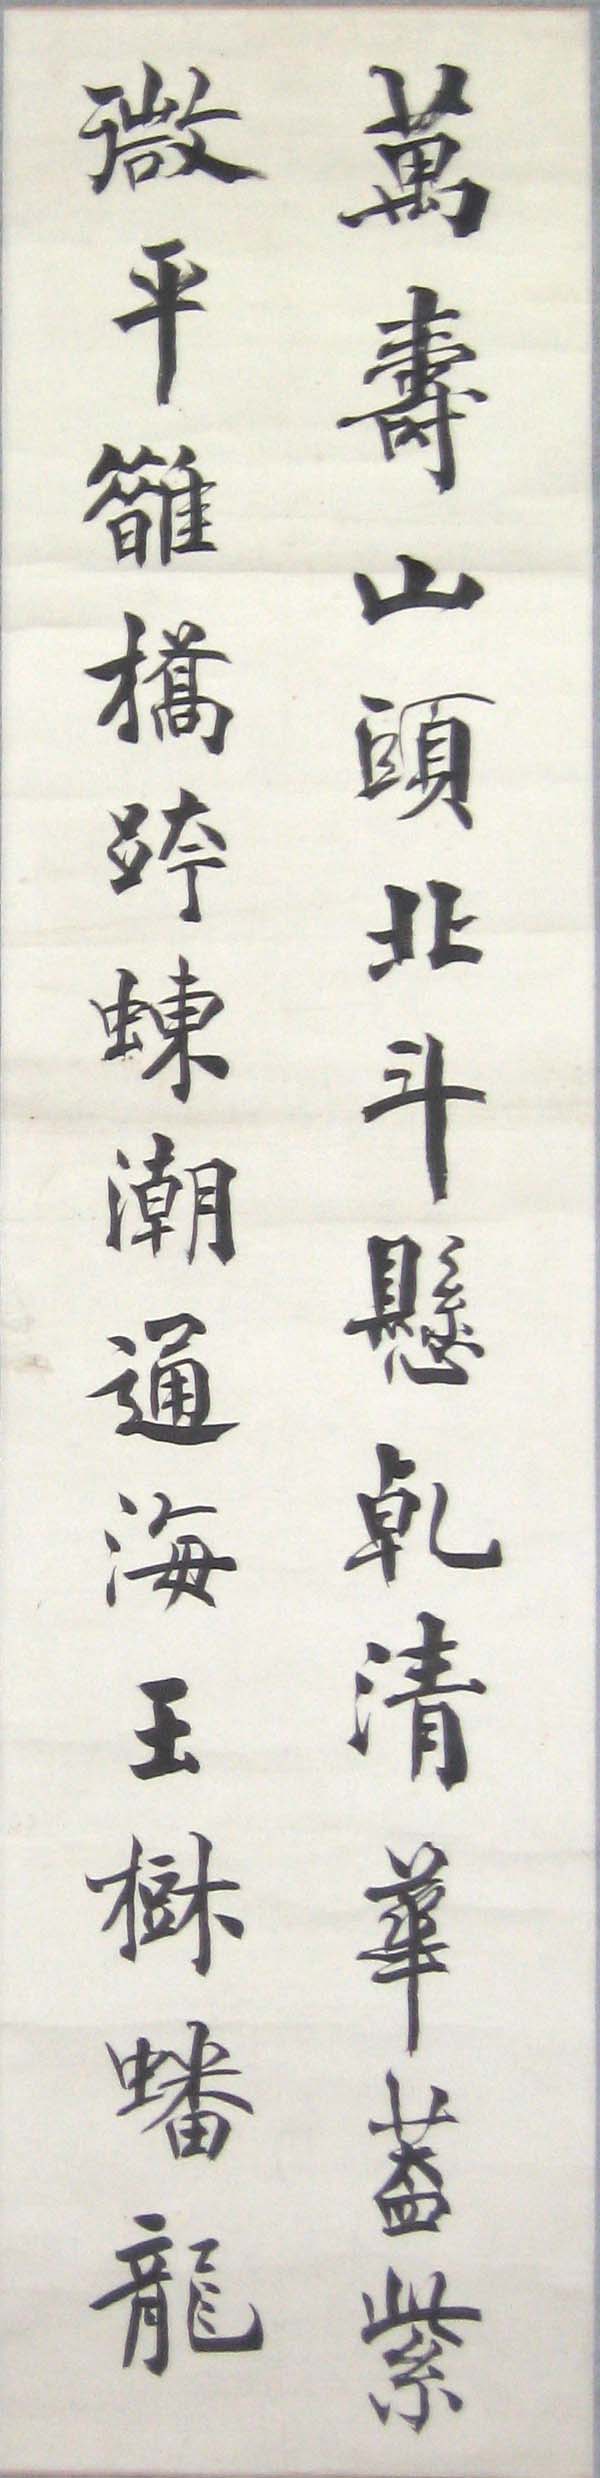 萬壽山頭北斗懸乹清華蓋紫
微平雝橋跨蝀潮通海玉樹蟠龍